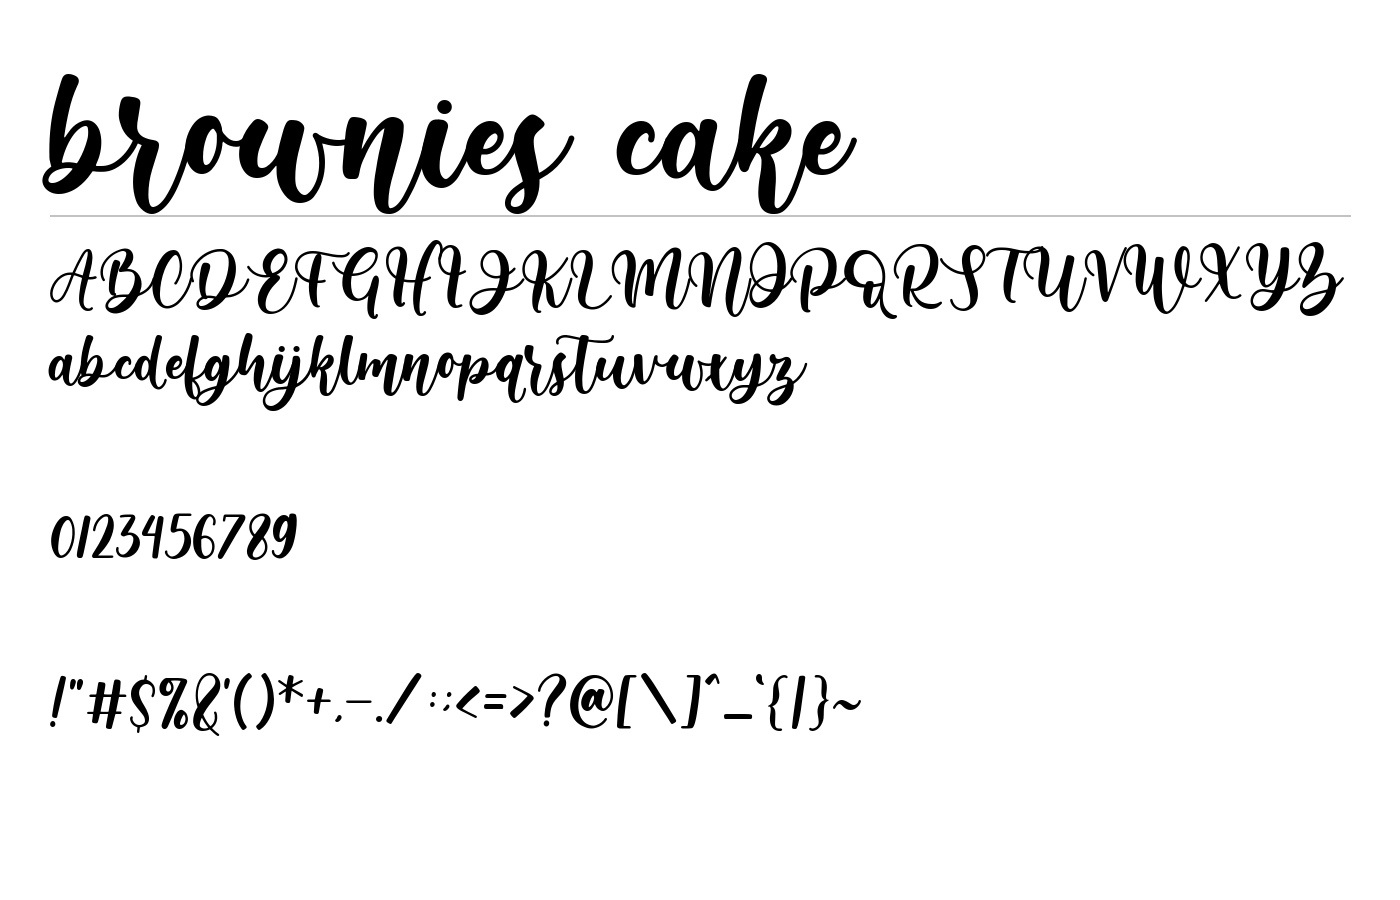 brownies cake
ABCDEFGHIJKLMNOPQRSTUVWXYZ
abcdefghijklmnopqrstuvwxyz
0123456789
!"#$%&'()*+,-./:;<=>?@[\]^_`{|}~